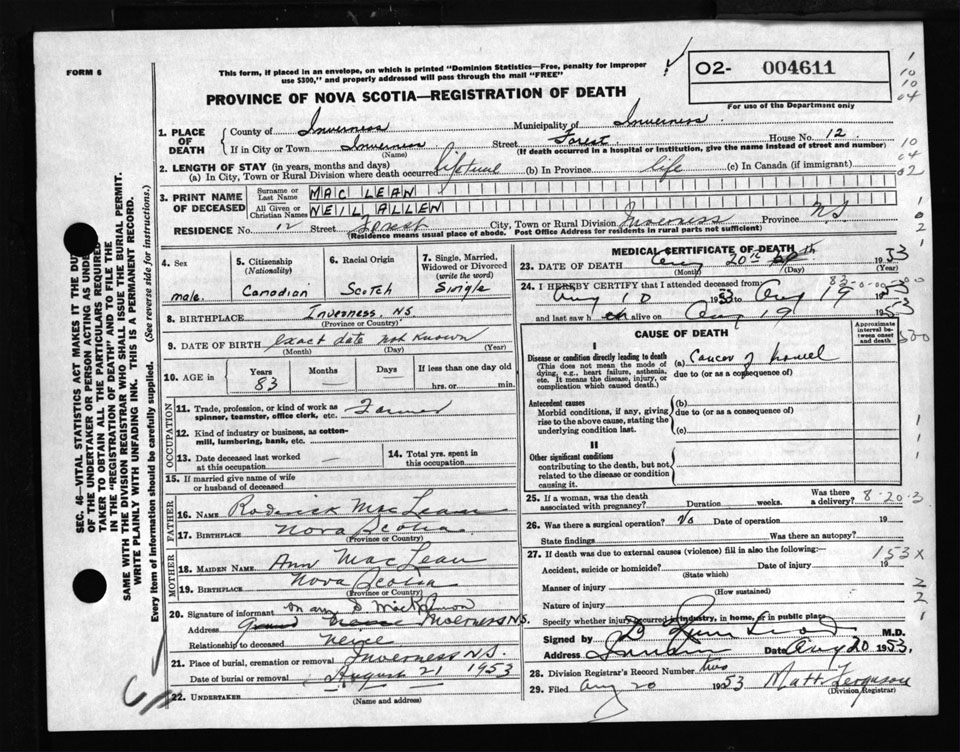 FORM 6
This form, if placed in an envelope, on which is printed "Dominion Statistics—Free, penalty for improper
use $300," and properly addressed will pass through the mail "FREE"
O2- 004611
For use of the Department only
PROVINCE OF NOVA SCOTIA—REGISTRATION OF DEATH
1. PLACE OF DEATH { County of Inverness Municipality of Inverness
If in City or Town Inverness (Name) Street Forest House No. 12.
(If death occurred in a hospital or institution, give the name instead of street and number)
2. LENGTH OF STAY (in years, months and days)
(a) In City, Town or Rural Division where death occurred (b) In Province life (c) In Canada (if immigrant)
3. PRINT NAME OF DECEASED { Surname or Last Name MAC LEAN
All Given or Christian Names NEIL ALLEN
RESIDENCE No. 12 Street Forest City, Town or Rural Division Inverness Province NS
(Residence means usual place of abode. Post Office Address for residents in rural parts not sufficient)
4. Sex male.
5. Citizenship (Nationality) Canadian
6. Racial Origin Scotch
7. Single, Married, Widowed or Divorced (write the word) Single
8. BIRTHPLACE Inverness, NS.
(Province or Country)
9. DATE OF BIRTH exact date not known
(Month) (Day) (Year)
10. AGE in { Years 83 Months — Days — If less than one day
hrs. or min.
OCCUPATION
11. Trade, profession, or kind of work as spinner, teamster, office clerk, etc. Farmer
12. Kind of industry or business, as cotton-mill, lumbering, bank, etc.
13. Date deceased last worked at this occupation —
14. Total yrs. spent in this occupation
15. If married give name of wife or husband of deceased
FATHER
16. NAME Roderick MacLean
17. BIRTHPLACE Nova Scotia
(Province or Country)
MOTHER
18. MAIDEN NAME Ann MacLean
19. BIRTHPLACE Nova Scotia
(Province or Country)
20. Signature of informant
Address Inverness N.S.
Relationship to deceased Neice
21. Place of burial, cremation or removal Inverness N.S.
Date of burial or removal August 21 1953
22. UNDERTAKER
(Name and address)
MEDICAL CERTIFICATE OF DEATH
23. DATE OF DEATH Aug 20th 1953
(Month) (Day) (Year)
83-0-00
24. I HEREBY CERTIFY that I attended deceased from:
Aug 10 1953 to Aug 19 1953
and last saw h alive on Aug 19 1953
CAUSE OF DEATH
Approximate interval between onset and death
I
Disease or condition directly leading to death
(This does not mean the mode of dying, e.g., heart failure, asthenia, etc. It means the disease, injury, or complication which caused death.)
(a) Cancer of bowel
due to (or as a consequence of)
Antecedent causes
Morbid conditions, if any, giving rise to the above cause, stating the underlying condition last.
(b)
due to (or as a consequence of)
(c)
II
Other significant conditions
contributing to the death, but not related to the disease or condition causing it.
25. If a woman, was the death associated with pregnancy? Duration weeks. Was there a delivery?
8-20-3
26. Was there a surgical operation? No Date of operation 19
State findings Was there an autopsy?
27. If death was due to external causes (violence) fill in also the following:—
153 X
Accident, suicide or homicide? Date of injury 19
(State which)
Manner of injury
(How sustained)
Nature of injury
Specify whether injury occurred in industry, in home, or in public place
Signed by M.D.
Address Date Aug 20 1953.
28. Division Registrar's Record Number two
29. Filed Aug 20 1953 Matt. Ferguson
(Division Registrar)
SEC. 46—VITAL STATISTICS ACT MAKES IT THE DUTY
OF THE UNDERTAKER OR PERSON ACTING AS UNDER-
TAKER TO OBTAIN ALL THE PARTICULARS REQUIRED
IN THE "REGISTRATION OF DEATH" AND TO FILE THE
SAME WITH THE DIVISION REGISTRAR WHO SHALL ISSUE THE BURIAL PERMIT.
WRITE PLAINLY WITH UNFADING INK. THIS IS A PERMANENT RECORD.
Every item of information should be carefully supplied. (See reverse side for instructions.)